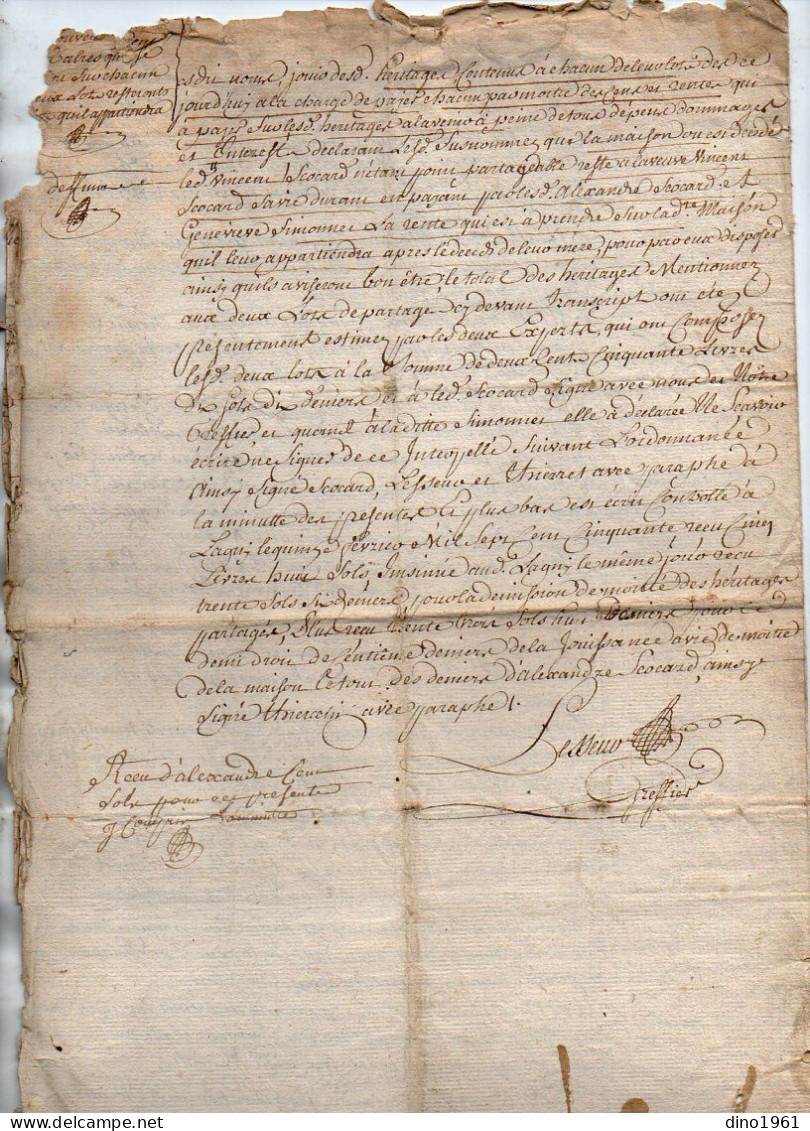 esdit noms, jouir desd. heritages Contenus à chacun de leur lots des ce
jourd'huy a la charge de payer chacun par moitié des Cens et rentes qui
a payer sur lesd. heritages a l'avenir à peine de tous depens dommages
et Interest declarant lesd. Susnommez que la maison ou est decedé
led. Vincent Scocard n'etant point partageable reste a la veuve Vincent
Scocard Sa vie durant en payant par lesd. Alexandre Scocard et
Genevieve Simonnet La rente qui est à prendre Sur lad.te Maison
qu'il leur appartiendra apres le deceds de leur mere, pour par eux disposer
ainsi qu'ils aviseront bon être le total des heritages Mentionnez
aux deux Lots de partage Cy devant transcript ont eté
presentement estimez par les deux Experts, qui ont Composez
lesd. deux lots à la Somme de deux Cent Cinquante Livres
dix Sols dix deniers et à led. Scocard Signé avec nous et Nôtre
Greffier et quand à ladite Simonnet elle a déclarée Ne Scavoir
écrire ne Signer de ce Interpellé Suivant L'ordonnance
Ainsy Signé Scocard, Lesseur et Thierret avec paraphe à
la minutte des presentes Et plus bas est écrit Controllé à
Lagny le quinze fevrier Mil Sept Cent Cinquante recu Cinq
Livres huit Sols insinué aud. Lagny le même jour recu
trente Sols Six deniers pour la demission de moitié des héritages
partagés, Plus recu trente trois Sols huit deniers pour le
demi droit de Centiême deniers de la Jouissance a vie de moitié
de la maison Le tout des deniers d'alexandre Scocard, ainsy
Signé thierret avec paraphe.
Lesseur
Greffier
Receu d'alexandre Cent
Sols pour ces presente
y Compris la minutte
Sur chacun
Lots resteronts
qu'il appartiendra
deffunt
dino1961